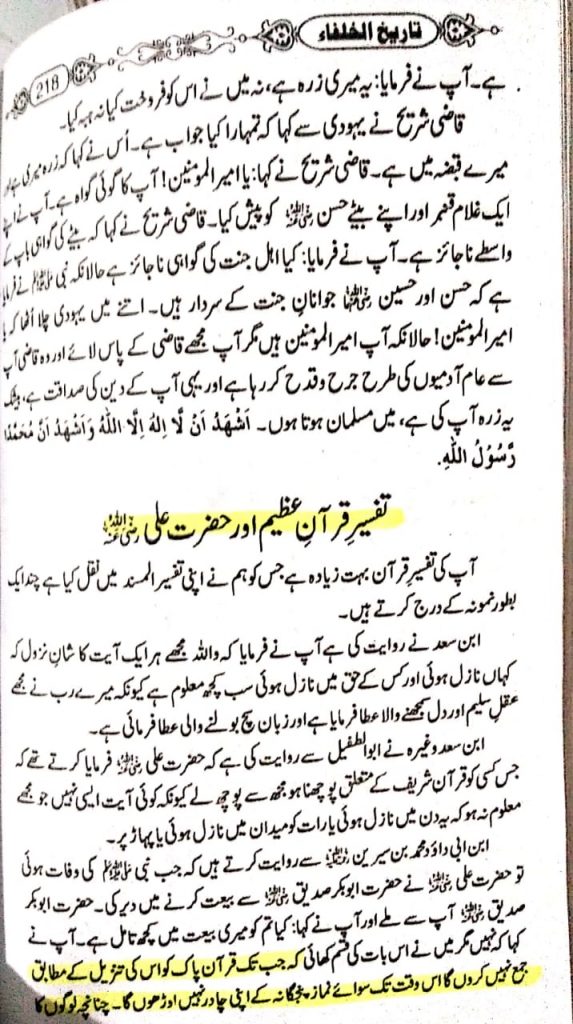 تاریخ الخلفاء
218
ہے۔ آپ نے فرمایا: یہ میری زرہ ہے، نہ میں نے اس کو فروخت کیا نہ ہبہ کیا۔
قاضی شریح نے یہودی سے کہا کہ تمہارا کیا جواب ہے۔ اُس نے کہا کہ زرہ میری ہے اور
میرے قبضہ میں ہے۔ قاضی شریح نے کہا: یا امیر المومنین! آپ کا کوئی گواہ ہے۔ آپ نے اپنے
ایک غلام قنبر اور اپنے بیٹے حسن رضی اللہ عنہ کو پیش کیا۔ قاضی شریح نے کہا کہ بیٹے کی گواہی باپ کے
واسطے ناجائز ہے۔ آپ نے فرمایا: کیا اہل جنت کی گواہی ناجائز ہے حالانکہ نبی ﷺ نے فرمایا
ہے کہ حسن اور حسین رضی اللہ عنہما جوانانِ جنت کے سردار ہیں۔ اتنے میں یہودی چلا اُٹھا کہ یا
امیر المومنین! حالانکہ آپ امیر المومنین ہیں مگر آپ مجھے قاضی کے پاس لائے اور وہ قاضی آپ
سے عام آدمیوں کی طرح جرح و قدح کر رہا ہے اور یہی آپ کے دین کی صداقت ہے، بیشک
یہ زرہ آپ کی ہے، میں مسلمان ہوتا ہوں۔ اَشْهَدُ اَنْ لَّا اِلٰهَ اِلَّا اللّٰهُ وَاَشْهَدُ اَنَّ مُحَمَّدًا
رَّسُوْلُ اللّٰهِ.
تفسیرِ قرآنِ عظیم اور حضرت علی رضی اللہ عنہ
آپ کی تفسیرِ قرآن بہت زیادہ ہے جس کو ہم نے اپنی تفسیر المسند میں نقل کیا ہے چند ایک
بطور نمونہ کے درج کرتے ہیں۔
ابن سعد نے روایت کی ہے آپ نے فرمایا کہ واللہ مجھے ہر ایک آیت کا شانِ نزول کہ
کہاں نازل ہوئی اور کس کے حق میں نازل ہوئی سب کچھ معلوم ہے کیونکہ میرے رب نے مجھے
عقلِ سلیم اور دل سمجھنے والا عطا فرمایا ہے اور زبان سچ بولنے والی عطا فرمائی ہے۔
ابن سعد وغیرہ نے ابوالطفیل سے روایت کی ہے کہ حضرت علی رضی اللہ عنہ فرمایا کرتے تھے کہ
جس کسی کو قرآن شریف کے متعلق پوچھنا ہو مجھ سے پوچھ لے کیونکہ کوئی آیت ایسی نہیں جو مجھے
معلوم نہ ہو کہ یہ دن میں نازل ہوئی یا رات کو میدان میں نازل ہوئی یا پہاڑ پر۔
ابن ابی داؤد محمد بن سیرین سے روایت کرتے ہیں کہ جب نبی ﷺ کی وفات ہوئی
تو حضرت علی رضی اللہ عنہ نے حضرت ابوبکر صدیق رضی اللہ عنہ سے بیعت کرنے میں دیر کی۔ حضرت ابوبکر
صدیق رضی اللہ عنہ آپ سے ملے اور آپ نے کہا: کیا تم کو میری بیعت میں کچھ تامل ہے۔ آپ نے
کہا کہ نہیں مگر میں نے اس بات کی قسم کھائی کہ جب تک قرآن پاک کو اس کی تنزیل کے مطابق
جمع نہیں کروں گا اس وقت تک سوائے نماز پنجگانہ کے اپنی چادر نہیں اوڑھوں گا۔ چنانچہ لوگوں کا